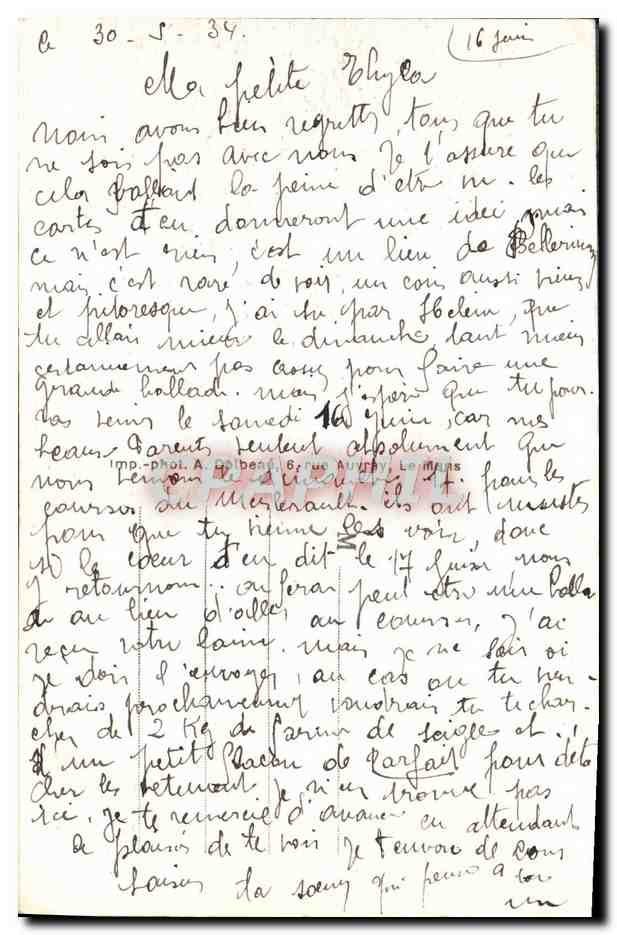 le 30-5-34.
(16 juin
Ma petite Thyla
nous avons bien regretté, tous que tu
ne sois pas avec nous je t'assure que
cela vallait la peine d'etre vu. les
cartes t'en donneront une idée, mais
ce n'est rien, c'est un lieu de
mais c'est rare de voir, un coin aussi vieux
et pitoresque, j'ai su par Helene, que
tu allais mieux le dimanche, tant mieux
certainement pas assez pour faire une
grande ballade. mais j'espère que tu pour-
ras venir le samedi 16 juin, car mes
beaux Parents veulent absolument que
Imp.-phot. A. Dolbeau, 6, rue Auvray, Le Mans
nous venions le dimanche 17. pour les
courses du Merlerault. ils ont insistés
pour que tu vienne les voir, donc
si le coeur t'en dit le 17 juin nous
y retournons.. on feras peut etre une balla
de au lieu d'aller au courses, j'ai
reçu votre laine. mais je ne sais où
je dois l'envoyer, au cas ou tu vien-
drais prochainement voudrais tu te char-
cher de 2 Kg de farine de seigle et
d'un petit flacon de Parfait pour déta
cher les vetement je n'en trouve pas
ici. je te remercie d'avance en attendant
le plaisir de te voir je t'envoie de bons
baisers ta soeur qui pense a toi